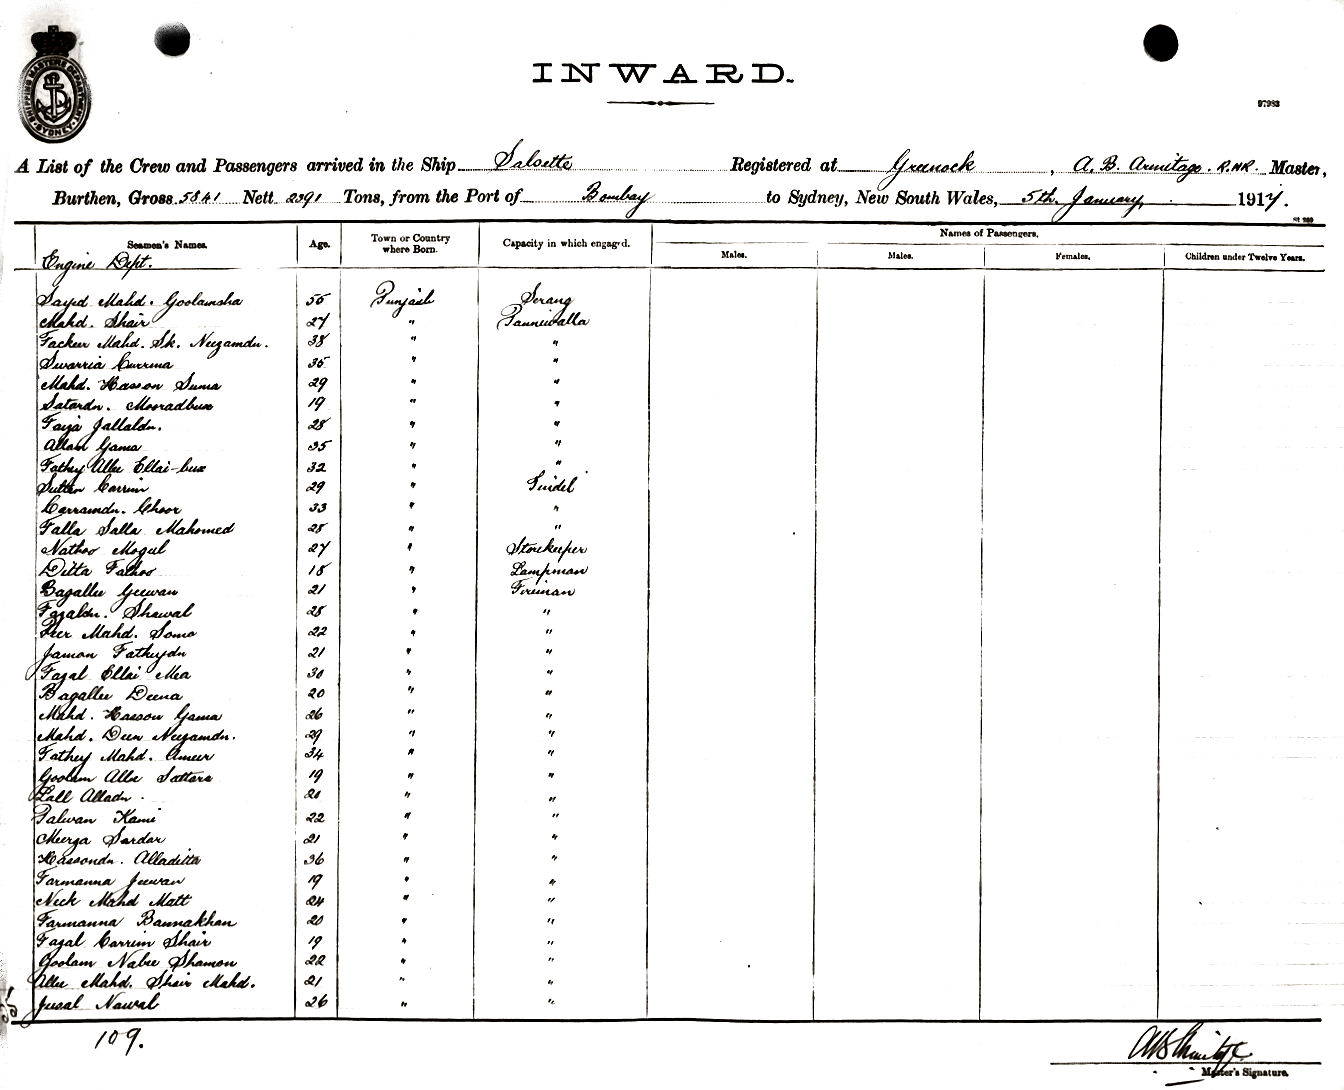 SHIPPING MASTERS DEPARTMENT SYDNEY
INWARD.
97983
A List of the Crew and Passengers arrived in the Ship Salsette Registered at Greenock, A. B. Armitage. R.N.R. Master,
Burthen, Gross 5841 Nett 2391 Tons, from the Port of Bombay to Sydney, New South Wales, 5th January 1917.
Seamen's Names. Age. Town or Country where Born. Capacity in which engaged. Names of Passengers.
Males. Males. Females. Children under Twelve Years.
Engine Dept.
Sayed Mahd. Goolamsha 55 Punjaub Serang
Mahd. Shair 27 " Panniwalla
Facker Mahd. Sk. Nuzamdn. 38 " "
Swarria Currma 35 " "
Mahd. Hasson Suma 29 " "
Satardn. Mooradbux 19 " "
Faija Jallaldn. 28 " "
Allam Gama 35 " "
Fathey Allee Ellai-bux 32 " "
Sultan Carrim 29 " Tindel
Carramdn. Choor 33 " "
Falla Salla Mahomed 28 " "
Nathoo Mogul 27 " Storekeeper
Ditta Fathoo 18 " Lampman
Bagallee Geewan 21 " Fireman
Fazaldn. Shawal 28 " "
Peer Mahd. Somo 22 " "
Jaman Fatheydn 21 " "
Fazal Ellai Mea 30 " "
Bagallee Deena 20 " "
Mahd. Hasson Gama 26 " "
Mahd. Deen Nuzamdn. 29 " "
Fathey Mahd. Ameer 34 " "
Goolam Allee Sattara 19 " "
Lall Alladn. 21 " "
Palwan Kami 22 " "
Meerza Sardar 21 " "
Hassondn. Alladitta 36 " "
Farmanna Jeewan 19 " "
Neck Mahd Matt 24 " "
Farmanna Bannakhan 20 " "
Fazal Carrim Shair 19 " "
Goolam Nabee Shamon 22 " "
Allee Mahd. Shair Mahd. 21 " "
Jusal Nawal 26 " "
35
109.
Master's Signature.